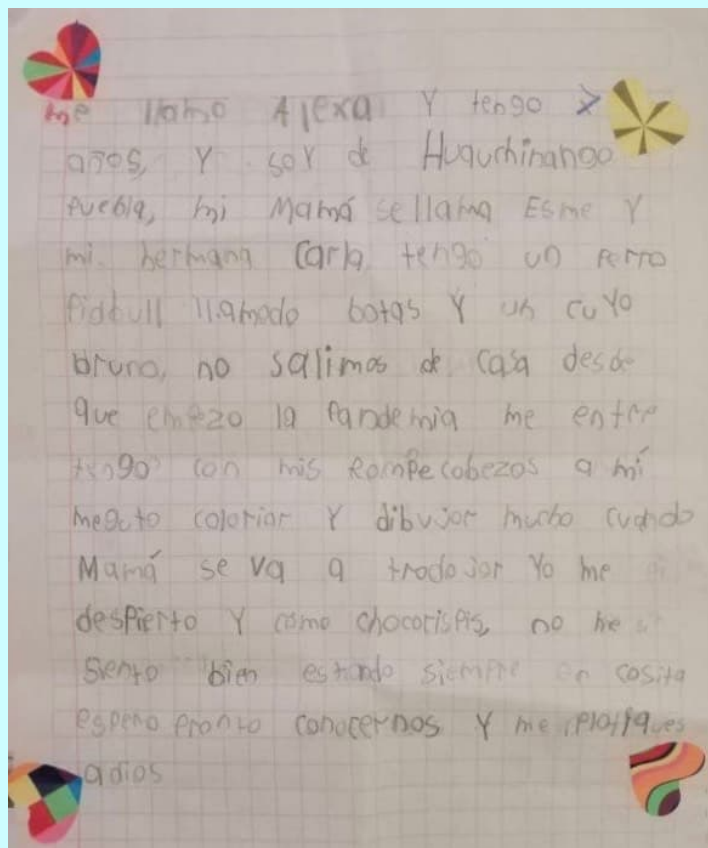 me llamo Alexa Y tengo 7
años, Y soy de Huauchinango
Puebla, mi Mamá se llama Esme Y
mi hermana Carla, tengo un Perro
Pidbull llamado botas Y un cuYo
bruno, no salimos de casa desde
que empezo la Pandemia me entre
tengo con mis Rompecabezas a mí
megusto coloriar Y dibujar mucho cuando
Mamá se va a trodojar Yo me
despierto Y como chocorispis, no me
siento bien estando siempre en cosita
espero pronto conocernos Y me platiques
adios